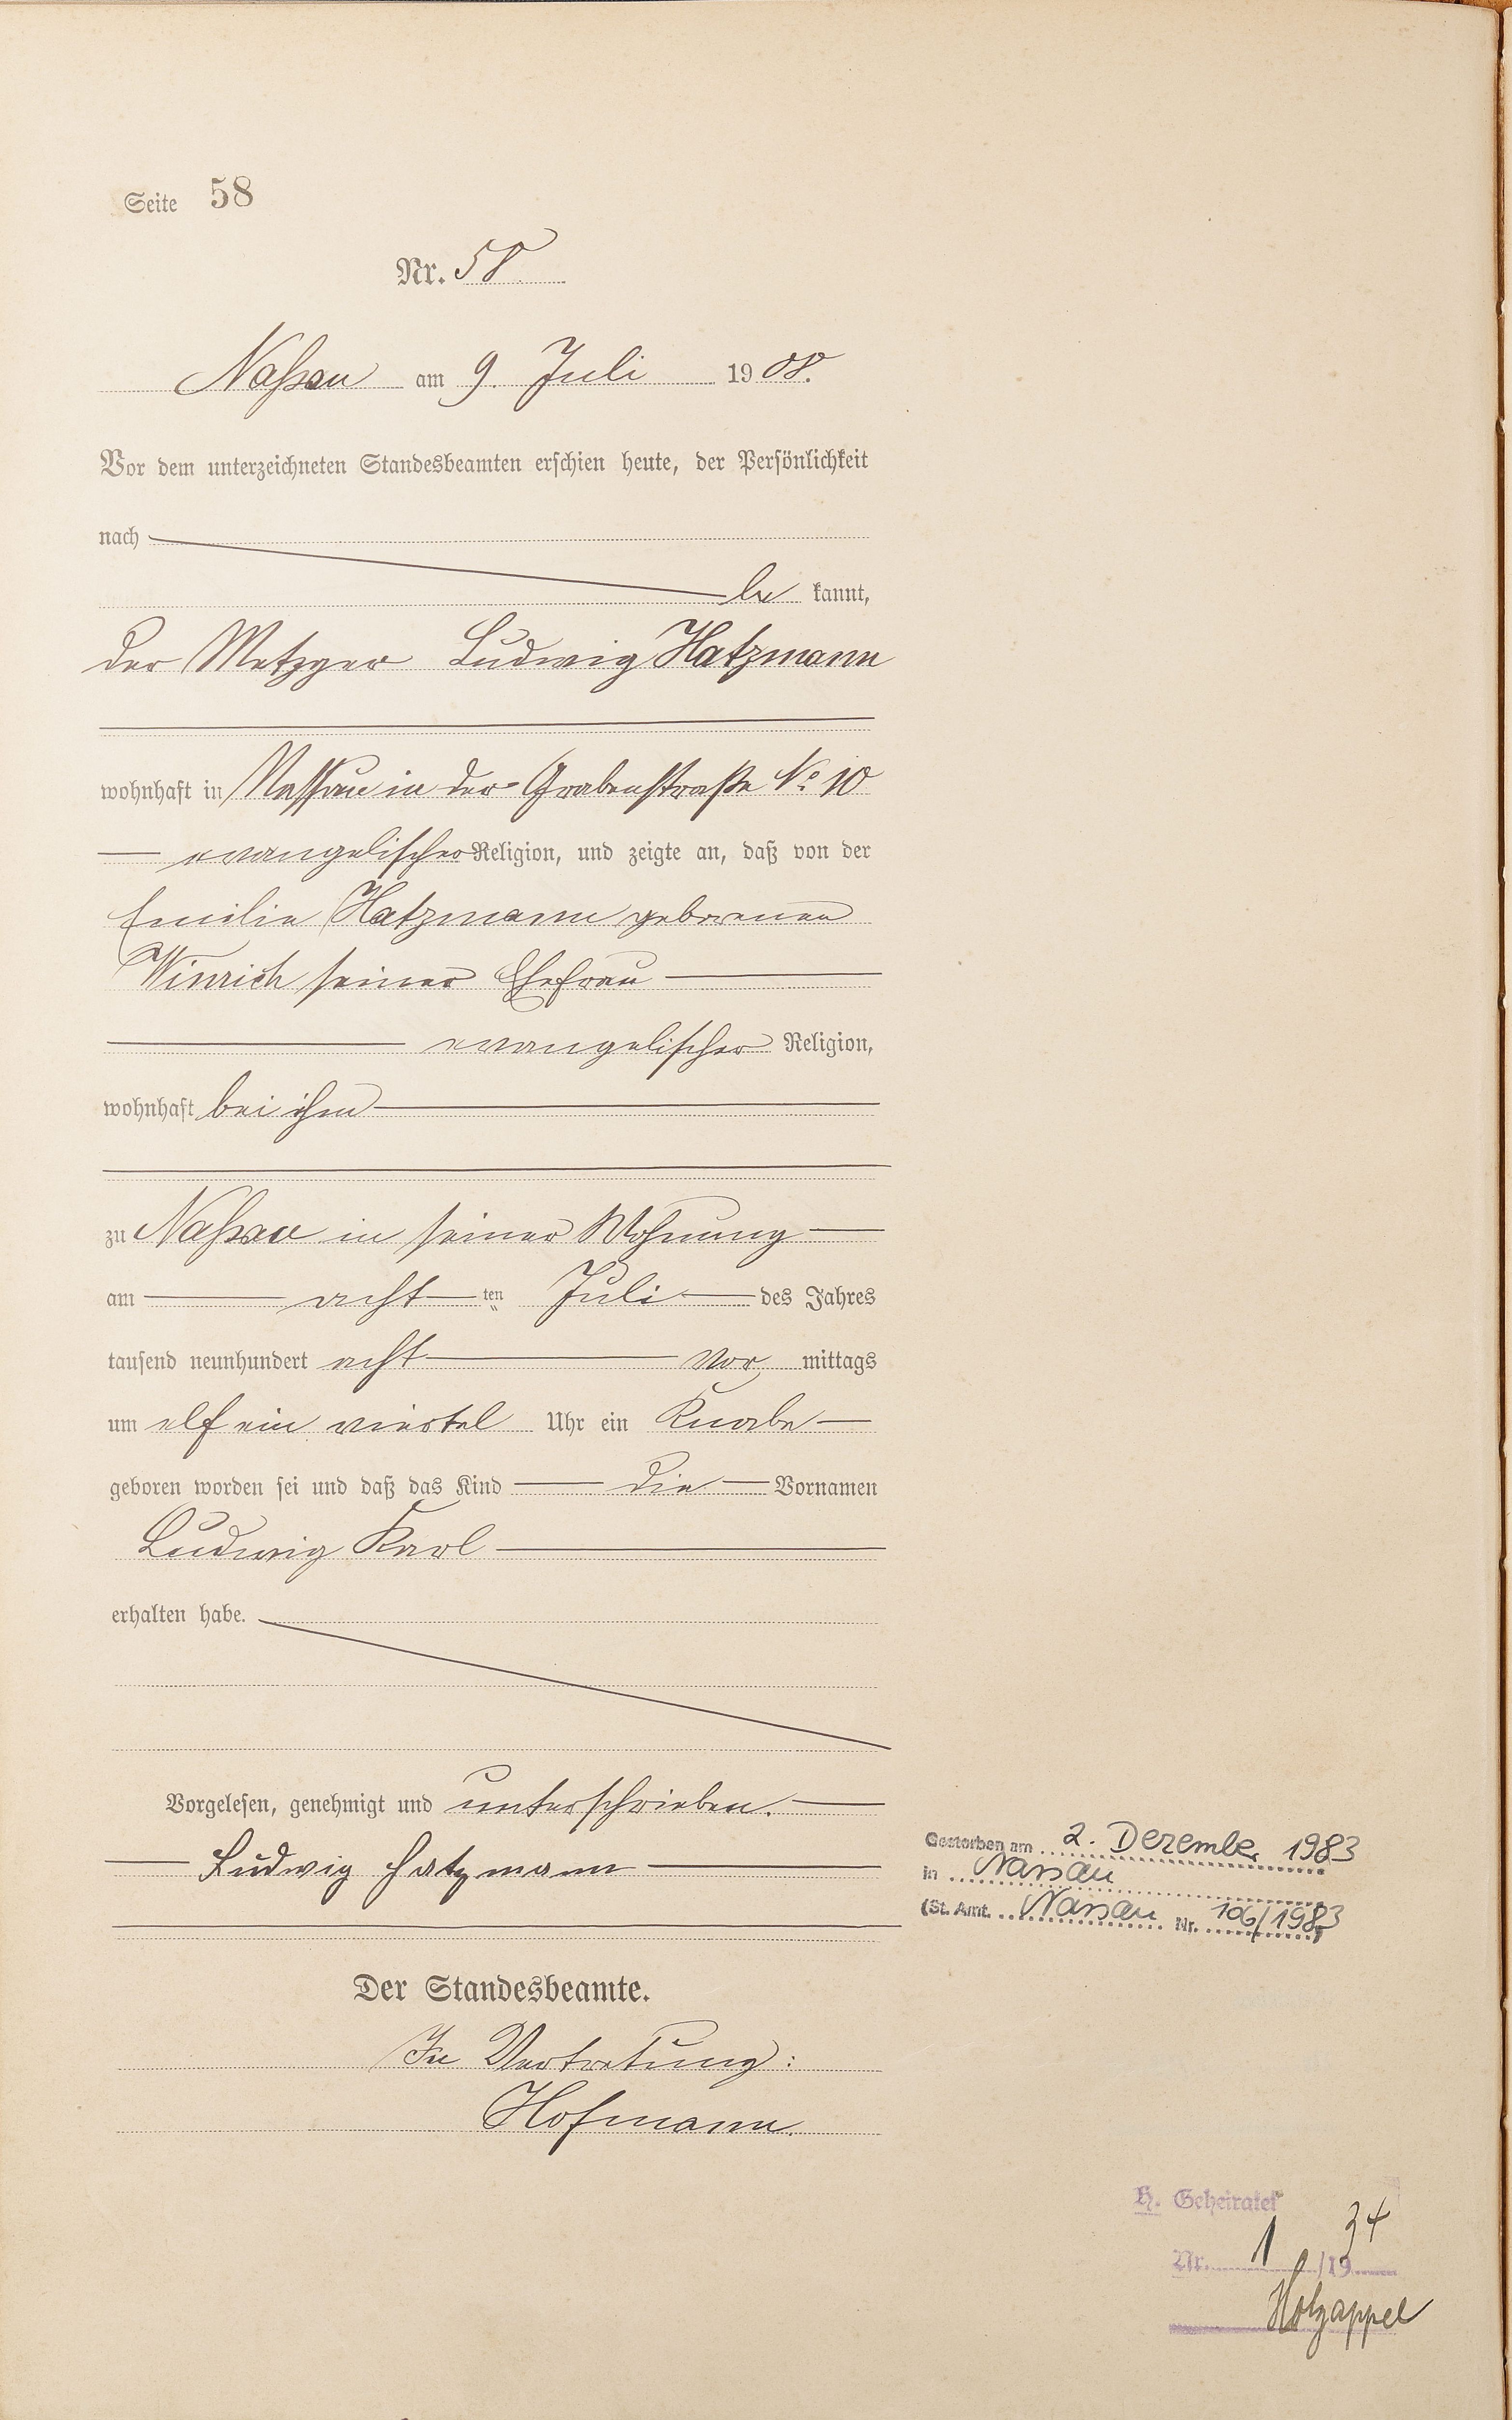 Seite 58
Nr. 58.
Nassau am 9. Juli 1908.
Vor dem unterzeichneten Standesbeamten erschien heute, der Persönlichkeit
nach
be kannt,
der Metzger Ludwig Hatzmann
wohnhaft in Nassau in der Grabenstraße No 10
evangelischer Religion, und zeigte an, daß von der
Emilie Hatzmann geborenen
Winrich seiner Ehefrau
evangelischer Religion,
wohnhaft bei ihm
zu Nassau in seiner Wohnung
am acht ten Juli des Jahres
tausend neunhundert acht vor mittags
um elf ein viertel Uhr ein Knabe
geboren worden sei und daß das Kind die Vornamen
Ludwig Karl
erhalten habe.
Vorgelesen, genehmigt und unterschrieben.
Ludwig Hatzmann
Der Standesbeamte.
In Vertretung:
Hofmann.
Gestorben am 2. Dezember 1983
in Nassau
(St. Amt. Nassau Nr. 106/1983)
H. Geheiratet
Nr. 1 /1934
Holzappel